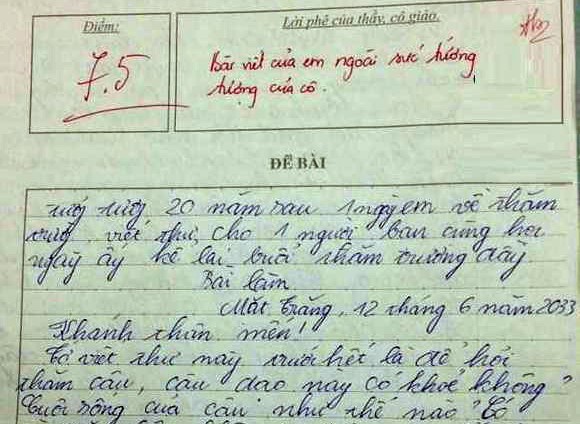 Điểm:
Lời phê của thầy, cô giáo.
7.5
Bài viết của em ngoài sức tưởng
tượng của cô.
ĐỀ BÀI
tưởng tượng 20 năm sau 1 ngày em về thăm
trường, viết thư cho 1 người bạn cùng học
ngày ấy kể lại buổi thăm trường đầy
Bài làm
Mặt trăng, 12 tháng 6 năm 2033
Khanh thân mến!
Tớ viết thư này trước hết là để hỏi
thăm cậu, cậu dạo này có khoẻ không?
Cuộc sống của cậu như thế nào? Có